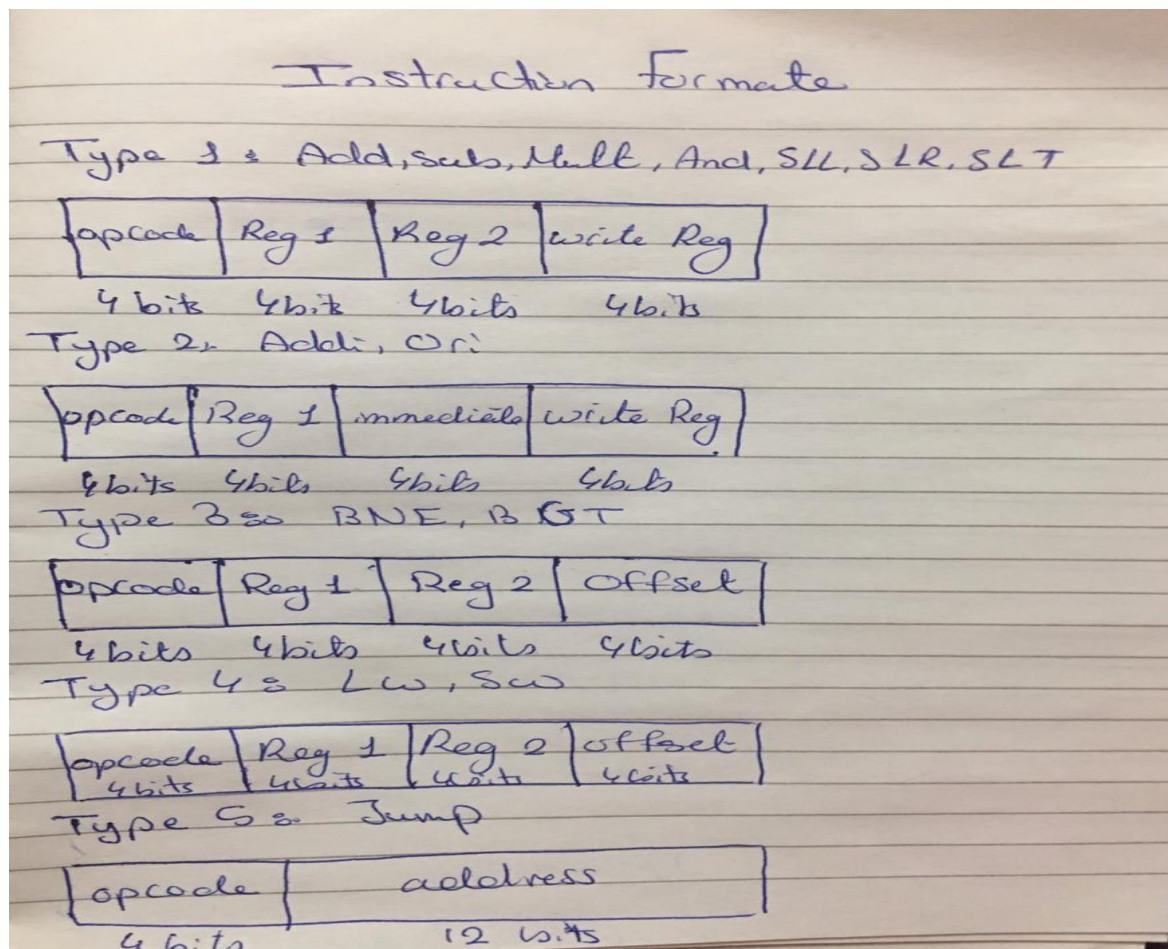 Instruction formate
Type 1: Add, sub, Mult, And, SLL, SLR, SLT
opcode Reg 1 Reg 2 write Reg
4 bits 4 bits 4 bits 4 bits
Type 2: Addi, Ori
opcode Reg 1 immediate write Reg
4 bits 4 bits 4 bits 4 bits
Type 3: BNE, BGT
opcode Reg 1 Reg 2 Offset
4 bits 4 bits 4 bits 4 bits
Type 4: Lw, Sw
opcode Reg 1 Reg 2 offset
4 bits 4 bits 4 bits 4 bits
Type 5: Jump
opcode address
4 bits 12 bits